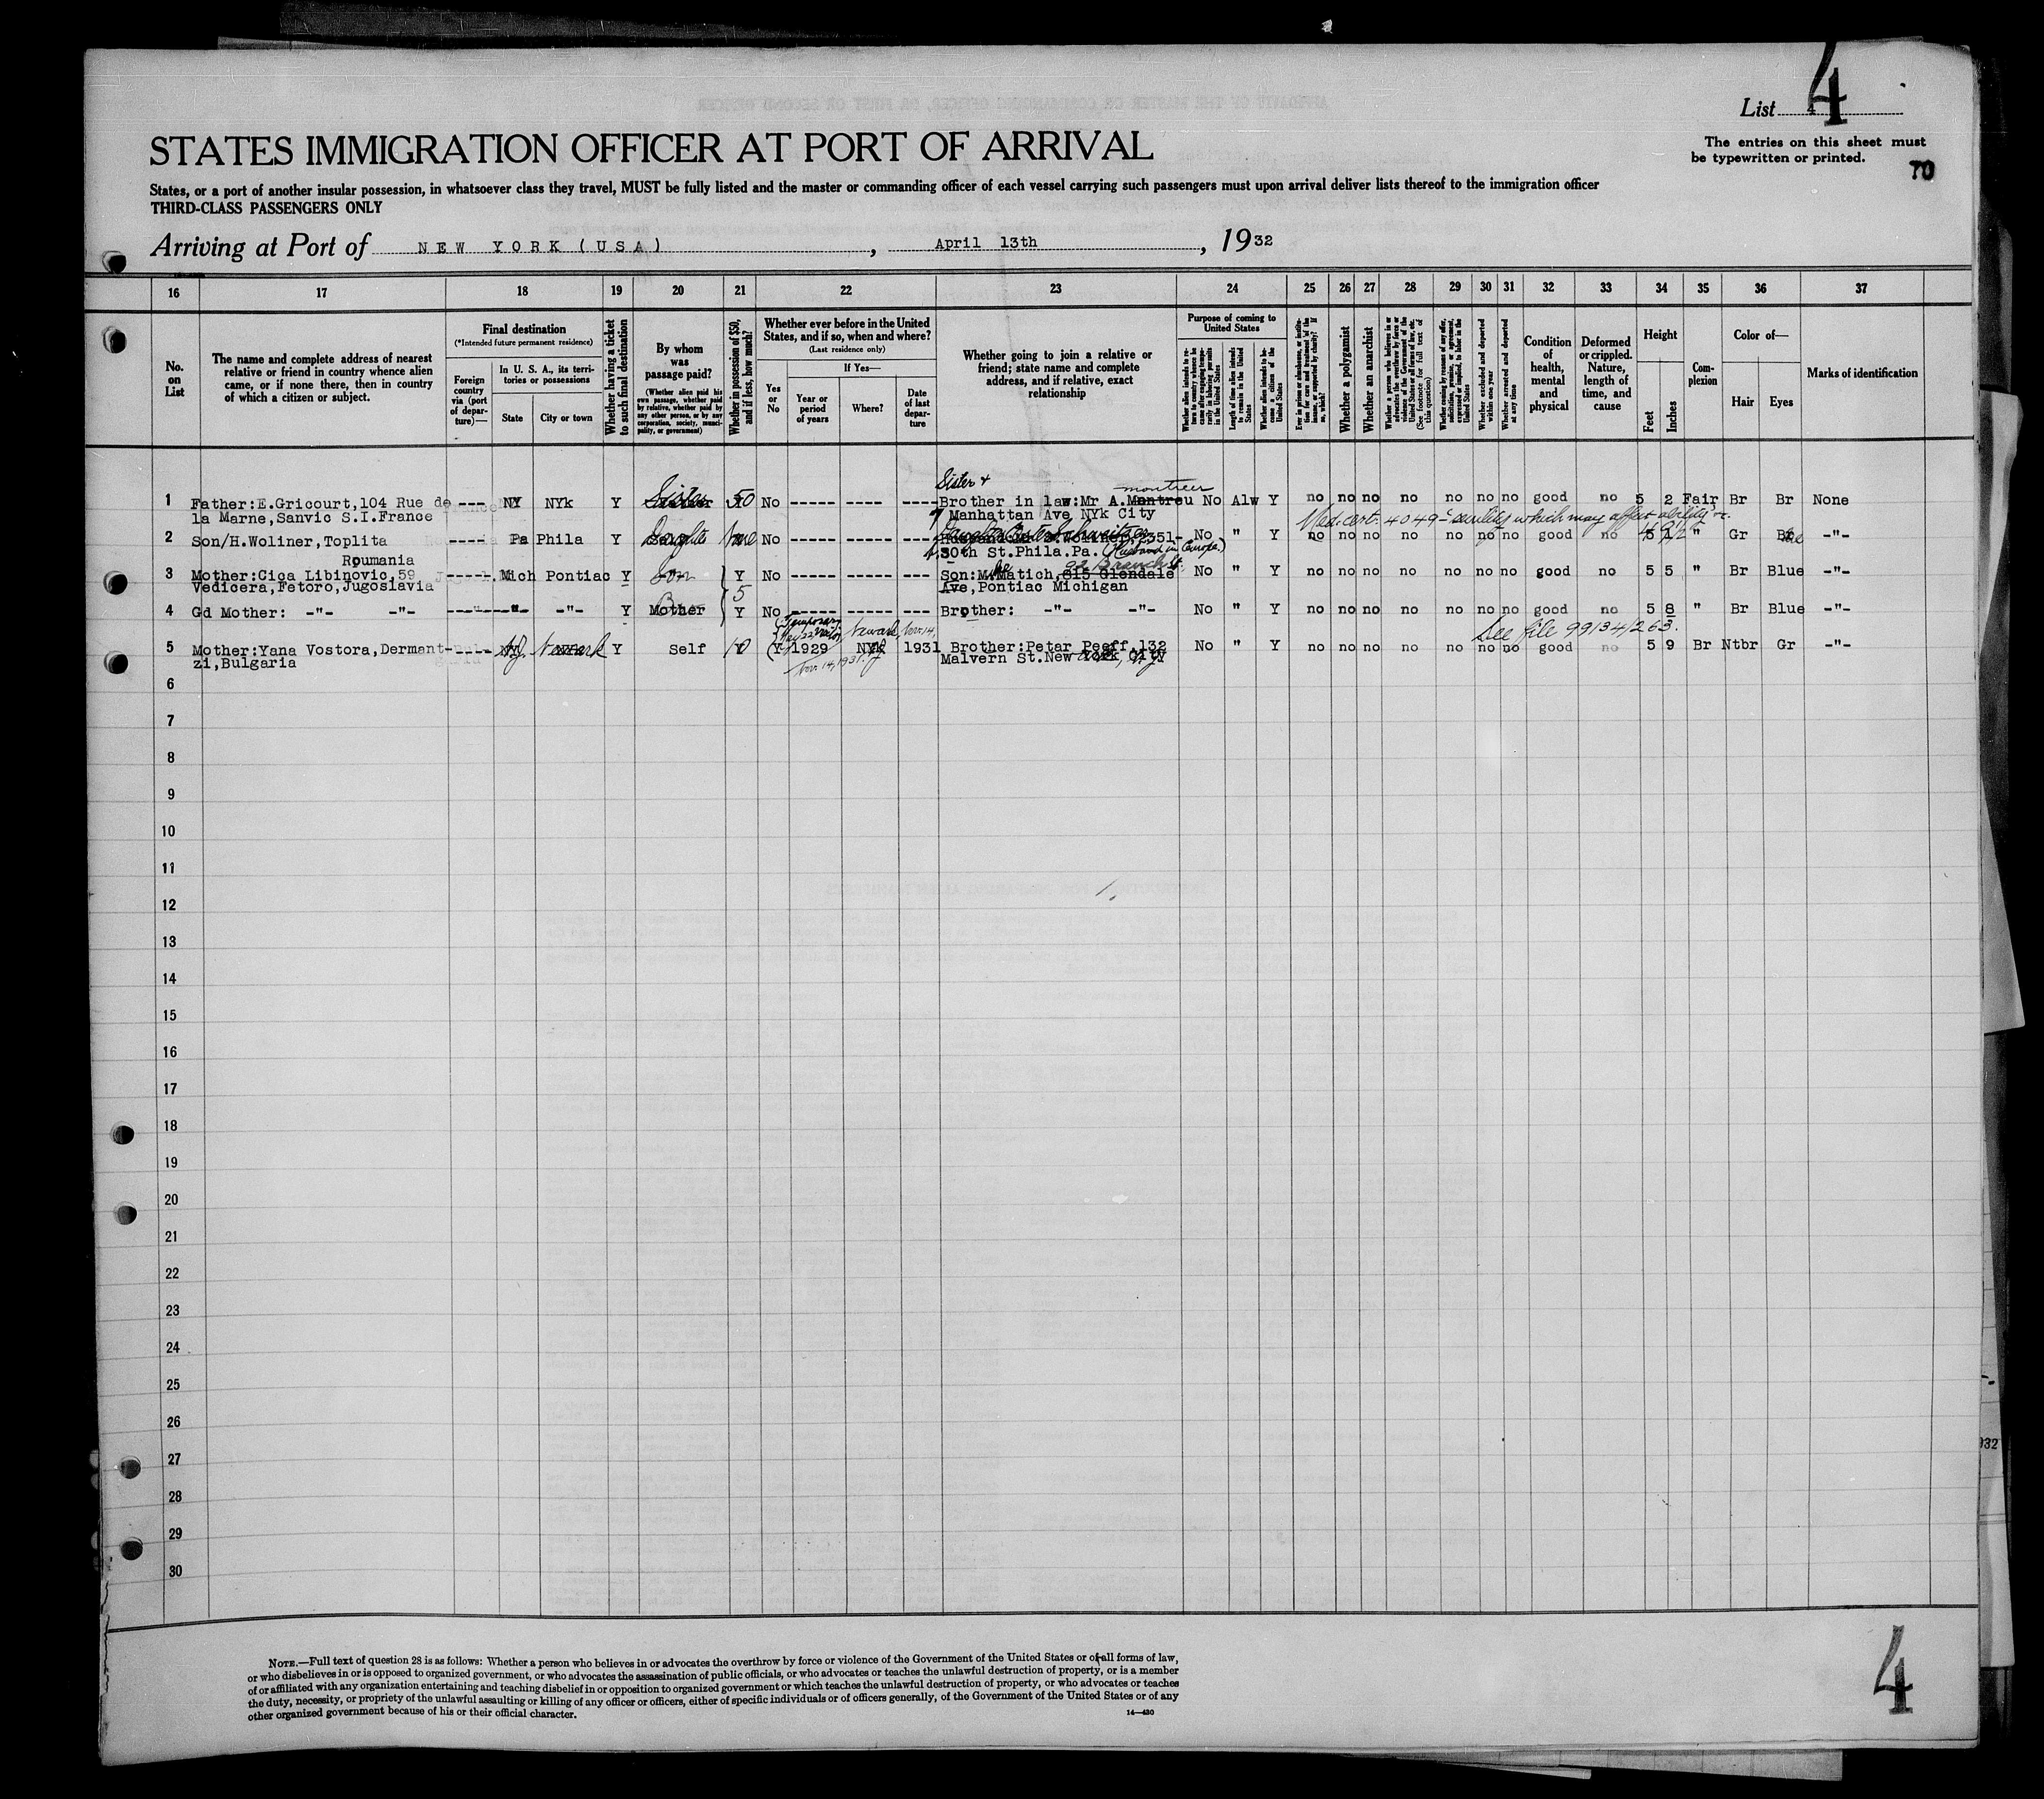 List 4
4
STATES IMMIGRATION OFFICER AT PORT OF ARRIVAL
The entries on this sheet must
be typewritten or printed.
70
States, or a port of another insular possession, in whatsoever class they travel, MUST be fully listed and the master or commanding officer of each vessel carrying such passengers must upon arrival deliver lists thereof to the immigration officer
THIRD-CLASS PASSENGERS ONLY
Arriving at Port of NEW YORK (USA), April 13th, 1932
16 17 18 19 20 21 22 23 24 25 26 27 28 29 30 31 32 33 34 35 36 37
No. on List
The name and complete address of nearest
relative or friend in country whence alien
came, or if none there, then in country
of which a citizen or subject.
Final destination
(*Intended future permanent residence)
Foreign country via (port of departure)—
In U. S. A., its territories or possessions
State
City or town
Whether having a ticket to such final destination
By whom was passage paid?
(Whether alien paid his own passage, whether paid by relative, whether paid by any other person, or by any corporation, society, municipality, or government)
Whether in possession of $50, and if less, how much?
Whether ever before in the United States, and if so, when and where?
(Last residence only)
Yes or No
If Yes—
Year or period of years
Where?
Date of last departure
Whether going to join a relative or
friend; state name and complete
address, and if relative, exact
relationship
Purpose of coming to United States
Whether alien intends to return to country whence he came after engaging temporarily in laboring pursuits in the United States
Length of time alien intends to remain in the United States
Whether alien intends to become a citizen of the United States
Ever in prison or almshouse, or institution for care and treatment of the insane, or supported by charity? If so, which?
Whether a polygamist
Whether an anarchist
Whether a person who believes in or advocates the overthrow by force or violence of the Government of the United States or all forms of law, etc. (See footnote for full text of this question)
Whether coming by reason of any offer, solicitation, promise, or agreement, expressed or implied, to labor in the United States
Whether excluded and deported within one year
Whether arrested and deported at any time
Condition of health, mental and physical
Deformed or crippled. Nature, length of time, and cause
Height
Feet
Inches
Complexion
Color of—
Hair
Eyes
Marks of identification
Sister +
montreer
1 Father:E.Gricourt,104 Rue de ---- NY NYk Y Sister 50 No ----- ----- ---- Brother in law:Mr A.Montreu No Alw Y no no no no no no no good no 5 2 Fair Br Br None
la Marne,Sanvic S.I.France
Manhattan Ave NYk City
Med. cert. 4049 - senility which may affect ability
2 Son/H.Woliner,Toplita ---- Pa Phila Y Daughter None No ----- ----- ---- 2351- No " Y no no no no no no no good no 5 " Gr -"-
Roumania
30th St.Phila.Pa. (Husband in Europe)
92 Branch St.
3 Mother:Ciga Libinovic,59 Mich Pontiac Y Son Y No ----- ----- ---- Son:M.Matich,815 Glendale No " Y no no no no no no no good no 5 5 " Br Blue -"-
Vedicera,Fetoro,Jugoslavia
5
Ave,Pontiac Michigan
4 Gd Mother: -"- -"- -"- -"- Y Mother Y No ----- ----- ---- Brother: -"- -"- No " Y no no no no no no no good no 5 8 " Br Blue -"-
See file 99134/263.
Newark, Nov. 14,
5 Mother:Yana Vostora,Dermant- NJ. Newark Y Self 10 Y 1929 NYk 1931 Brother:Petar Peeff,132 No " Y no no no no no no no good no 5 9 Br Ntbr Gr -"-
zi,Bulgaria
Nov. 14, 1931.
Malvern St.New York City
6
7
8
9
10
11
12
13
14
15
16
17
18
19
20
21
22
23
24
25
26
27
28
29
30
932
NOTE.—Full text of question 28 is as follows: Whether a person who believes in or advocates the overthrow by force or violence of the Government of the United States or of all forms of law,
or who disbelieves in or is opposed to organized government, or who advocates the assassination of public officials, or who advocates or teaches the unlawful destruction of property, or is a member
of or affiliated with any organization entertaining and teaching disbelief in or opposition to organized government or which teaches the unlawful destruction of property, or who advocates or teaches
the duty, necessity, or propriety of the unlawful assaulting or killing of any officer or officers, either of specific individuals or of officers generally, of the Government of the United States or of any
other organized government because of his or their official character.
14—430
4